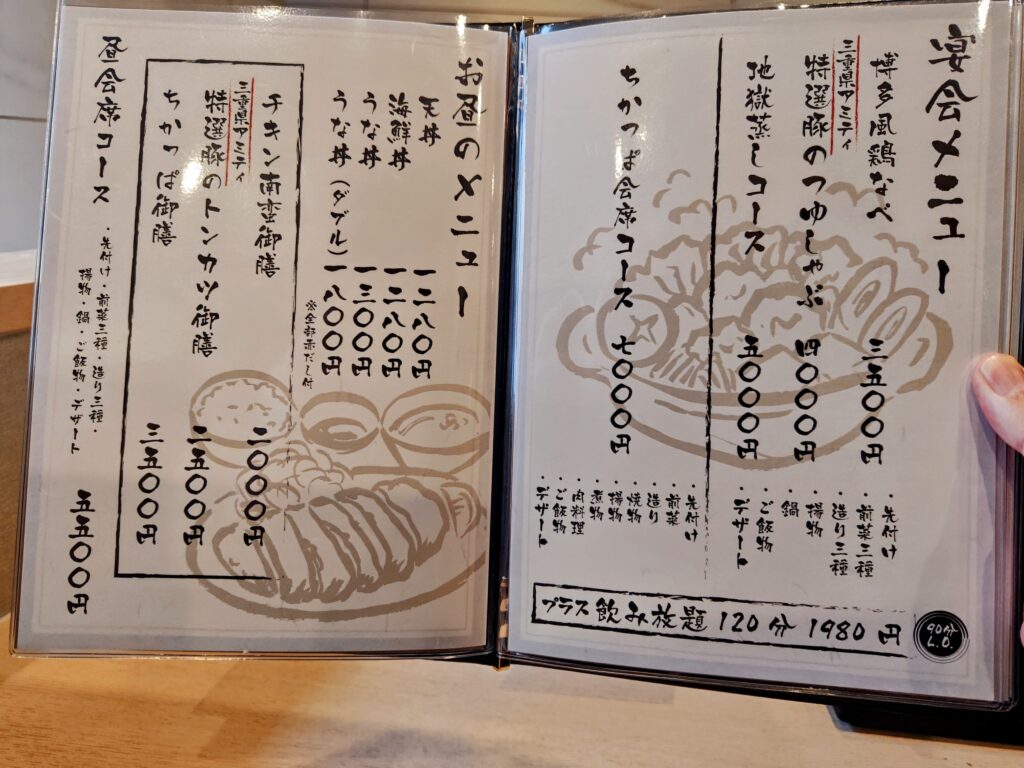 宴会メニュー
博多風鶏なべ 三五〇〇円
三重県アミティ
特選豚のつゆしゃぶ 四〇〇〇円
地獄蒸しコース 五〇〇〇円
・先付け
・前菜三種
・造り三種
・揚物
・鍋
・ご飯物
・デザート
ちかっぱ会席コース 七〇〇〇円
・先付け
・前菜
・造り
・焼物
・揚物
・煮物
・肉料理
・ご飯物
・デザート
プラス飲み放題 120分 1980円
90分
L.O.
お昼のメニュー
天丼 一一八〇円
海鮮丼 一二八〇円
うな丼 一三〇〇円
うな丼(ダブル) 一八〇〇円
※全部赤だし付
チキン南蛮御膳 二〇〇〇円
三重県アミティ
特選豚のトンカツ御膳 二五〇〇円
ちかっぱ御膳 三五〇〇円
昼会席コース 五五〇〇円
・先付け・前菜三種・造り三種・
揚物・鍋・ご飯物・デザート